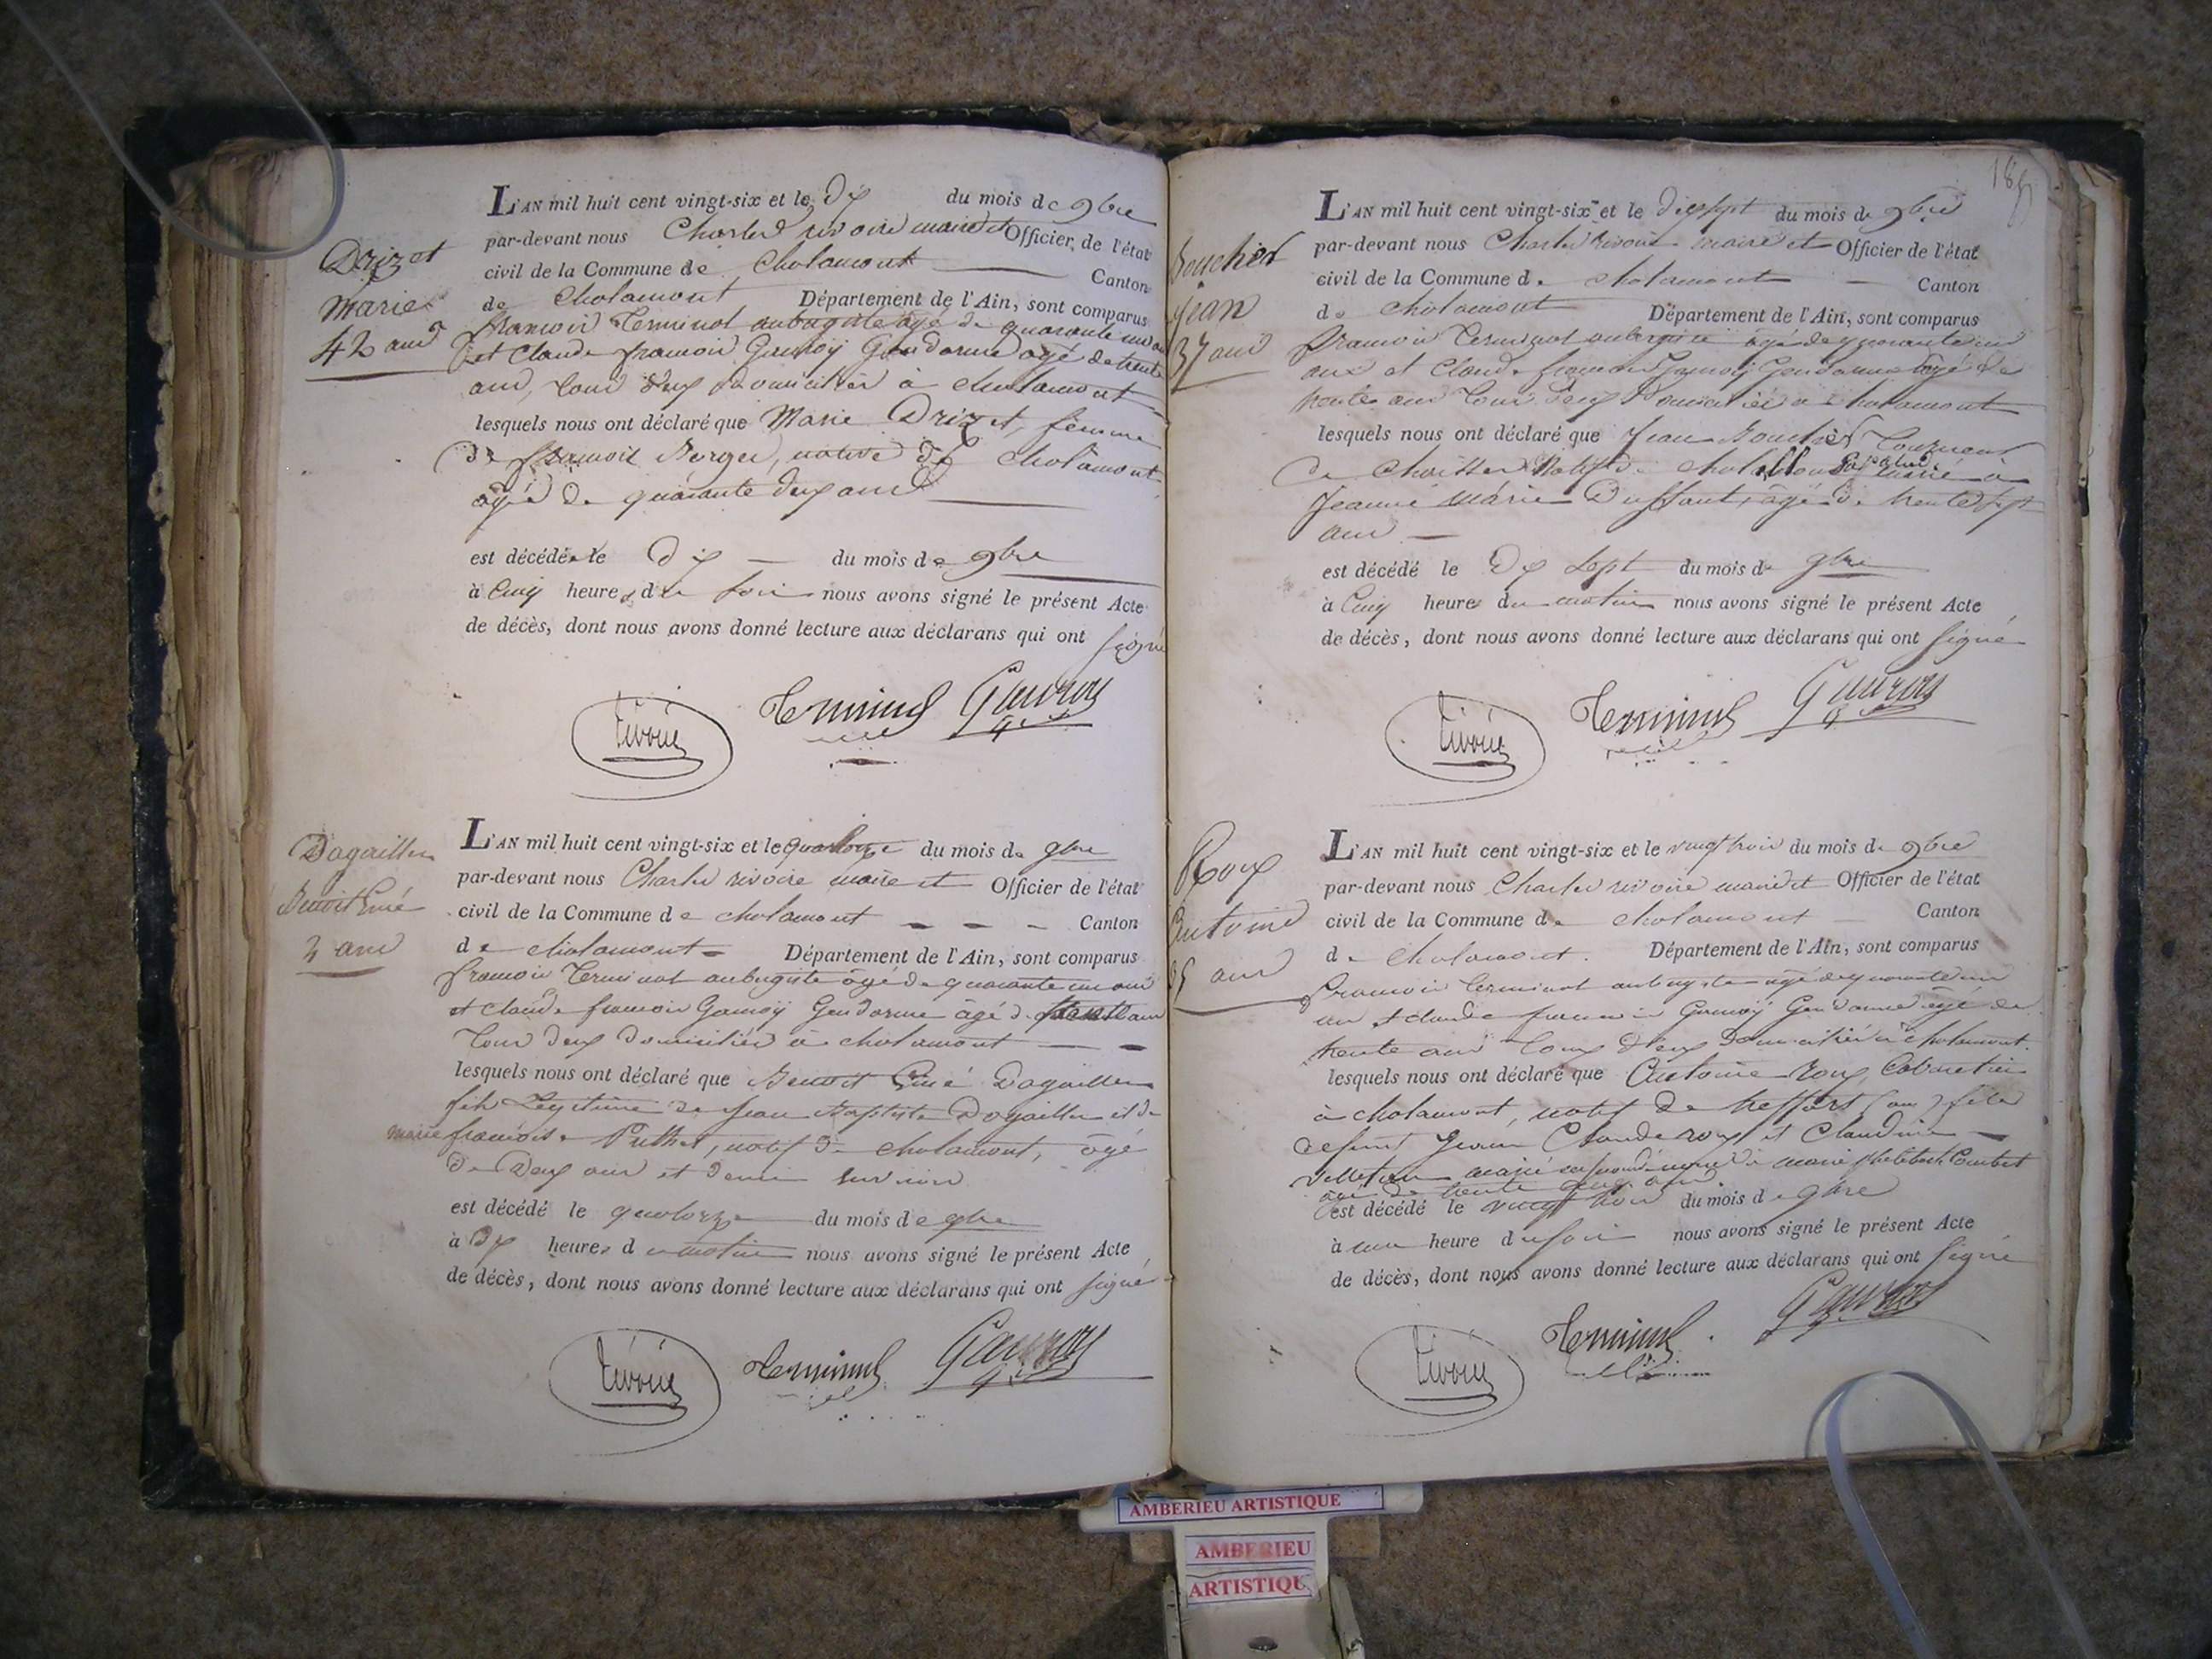 Drizet
Marie
42 ans
L'AN mil huit cent vingt-six et le dix du mois de 9bre
par-devant nous Charles rivoire maire et Officier de l'état
civil de la Commune de Chalamont Canton
de Chalamont Département de l'Ain, sont comparus
francois Terminal aubergiste âgé de quarante un ans
et Claude francois Gauroÿ Gendarme âgé de trente
ans, tous deux domiciliés à chalamont
lesquels nous ont déclaré que Marie Drizet, femme
de francois Berger, native de Chalamont
âgé de quarante deux ans
est décédée le dix du mois de 9bre
à Cinq heures du soir nous avons signé le présent Acte
de décès, dont nous avons donné lecture aux déclarans qui ont signé
rivoire Terminal Gauroy
Dagaillier
Benoit
2 ans
L'AN mil huit cent vingt-six et le quatorze du mois de 9bre
par-devant nous Charles rivoire maire et Officier de l'état
civil de la Commune de chalamont Canton
de chalamont Département de l'Ain, sont comparus
francois Terminal aubergiste âgé de quarante un ans
et Claude francois Gauroÿ Gendarme âgé de trente ans
tous deux domiciliés à chalamont
lesquels nous ont déclaré que Benoit Dagaillier
fils Légitime de Jean Baptiste Dagaillier et de
marie francoise Puthet, natif de chalamont, âgé
de Deux ans et demi
est décédé le quatorze du mois de 9bre
à Dix heures du matin nous avons signé le présent Acte
de décès, dont nous avons donné lecture aux déclarans qui ont signé
rivoire Terminal Gauroy
Boucher
Jean
37 ans
L'AN mil huit cent vingt-six et le dix sept du mois de 9bre
par-devant nous Charles rivoire maire et Officier de l'état
civil de la Commune de chalamont Canton
de chalamont Département de l'Ain, sont comparus
francois Terminal aubergiste âgé de quarante un
ans et Claude francois Gauroÿ Gendarme âgé de
trente ans tous deux Domiciliés à chalamont
lesquels nous ont déclaré que Jean Boucher Tourneur
de Chaises Natif de marié à
Jeanne Marie Duffaut, âgé de trente sept
ans
est décédé le Dix Sept du mois de 9bre
à Cinq heures du matin nous avons signé le présent Acte
de décès, dont nous avons donné lecture aux déclarans qui ont signé
rivoire Terminal Gauroy
Roux
Antoine
ans
L'AN mil huit cent vingt-six et le vingt trois du mois de 9bre
par-devant nous Charles rivoire maire et Officier de l'état
civil de la Commune de chalamont Canton
de Chalamont. Département de l'Ain, sont comparus
francois Terminal aubergiste âgé de quarante un
ans et claude francois Gauroÿ Gendarme âgé de
trente ans tous deux Domiciliés à chalamont.
lesquels nous ont déclaré que Antoine roux, Cabaretier
à chalamont, natif de treffort (ain) fils
defunt Claude roux et Claudine
marié de marie Combet
âgé de trente ans
est décédé le vingt trois du mois de 9bre
à une heure du soir nous avons signé le présent Acte
de décès, dont nous avons donné lecture aux déclarans qui ont signé
rivoire Terminal Gauroy
AMBERIEU ARTISTIQUE
AMBERIEU
ARTISTIQU